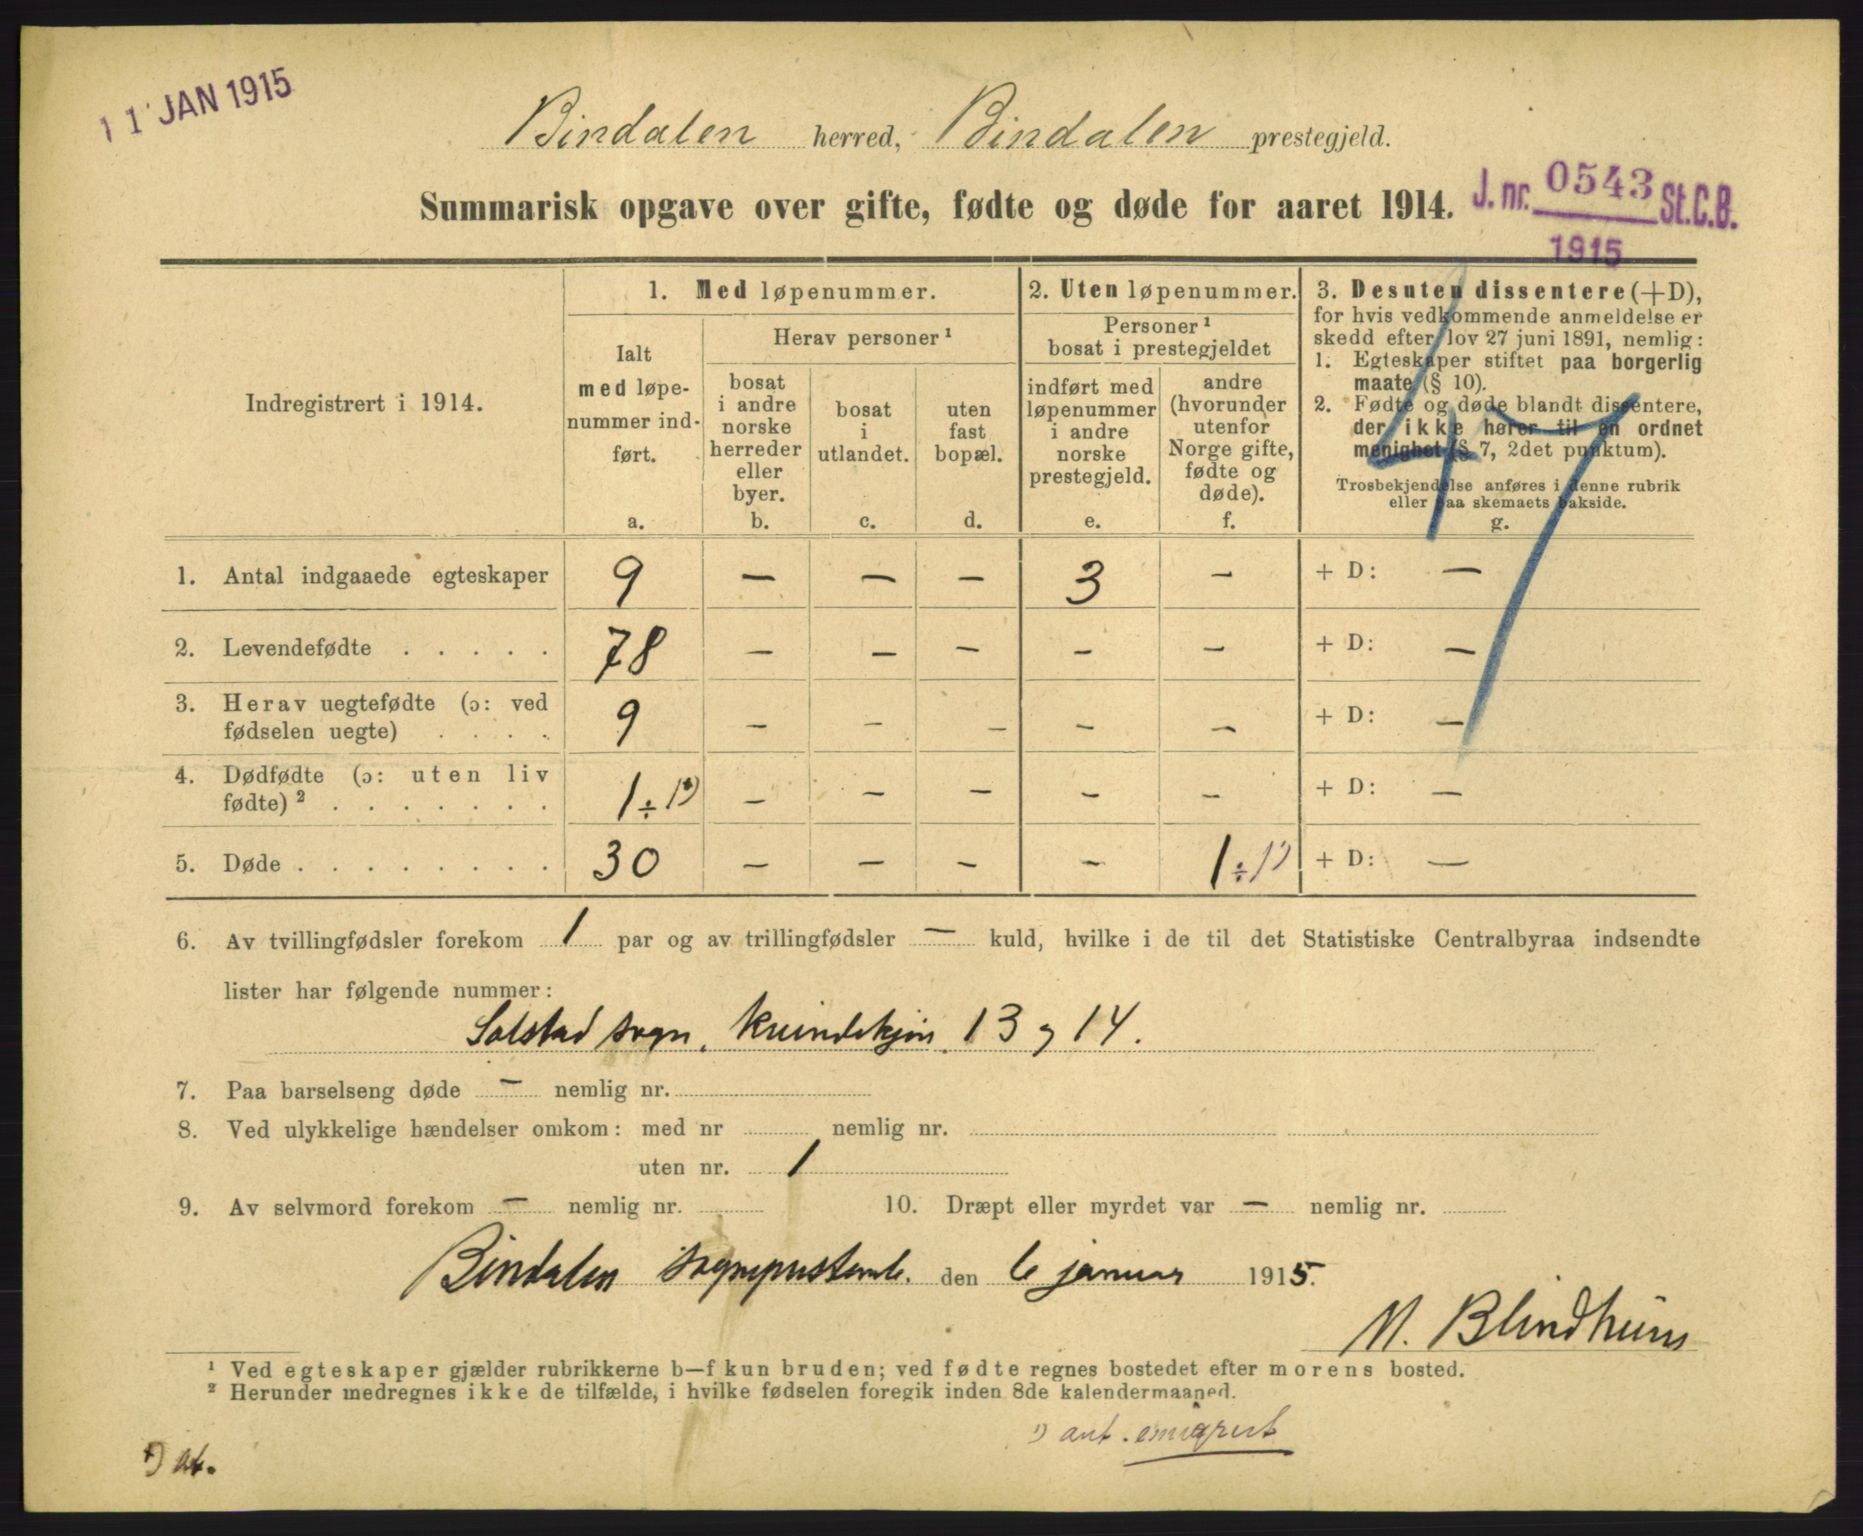 11 JAN 1915
Bindalen herred, Bindalen prestegjeld.
Summarisk opgave over gifte, fødte og døde for aaret 1914.
J. nr. 0543 St.C.B.
1915
47
Indregistrert i 1914.
1. Med løpenummer.
Ialt
med løpe-
nummer ind-
ført.
a.
Herav personer ¹
bosat
i andre
norske
herreder
eller
byer.
b.
bosat
i
utlandet.
c.
uten
fast
bopæl.
d.
2. Uten løpenummer.
Personer ¹
bosat i prestegjeldet
indført med
løpenummer
i andre
norske
prestegjeld.
e.
andre
(hvorunder
utenfor
Norge gifte,
fødte og
døde).
f.
3. Desuten dissentere (+D),
for hvis vedkommende anmeldelse er
skedd efter lov 27 juni 1891, nemlig:
1. Egteskaper stiftet paa borgerlig
maate (§ 10).
2. Fødte og døde blandt dissentere,
der ikke hører til en ordnet
menighet (§ 7, 2det punktum).
Trosbekjendelse anføres i denne rubrik
eller paa skemaets bakside.
g.
1. Antal indgaaede egteskaper 9 — — — 3 — + D: —
2. Levendefødte . . . . . 78 — — — — — + D: —
3. Herav uegtefødte (ɔ: ved
fødselen uegte) . . . . 9 — — — — — + D: —
4. Dødfødte (ɔ: uten liv
fødte) ² . . . . . . . 1 ÷ 1*) — — — — — + D: —
5. Døde . . . . . . . . 30 — — — — 1 ÷ 1¹) + D: —
6. Av tvillingfødsler forekom 1 par og av trillingfødsler — kuld, hvilke i de til det Statistiske Centralbyraa indsendte
lister har følgende nummer:
Solstad sogn, kvindekjøn 13 og 14.
7. Paa barselseng døde — nemlig nr.
8. Ved ulykkelige hændelser omkom: med nr nemlig nr.
uten nr. 1
9. Av selvmord forekom — nemlig nr. 10. Dræpt eller myrdet var — nemlig nr.
Bindalen den 6 januar 1915.
M. Blindheim
¹ Ved egteskaper gjælder rubrikkerne b—f kun bruden; ved fødte regnes bostedet efter morens bosted.
² Herunder medregnes ikke de tilfælde, i hvilke fødselen foregik inden 8de kalendermaaned.
¹) ant. emigrert